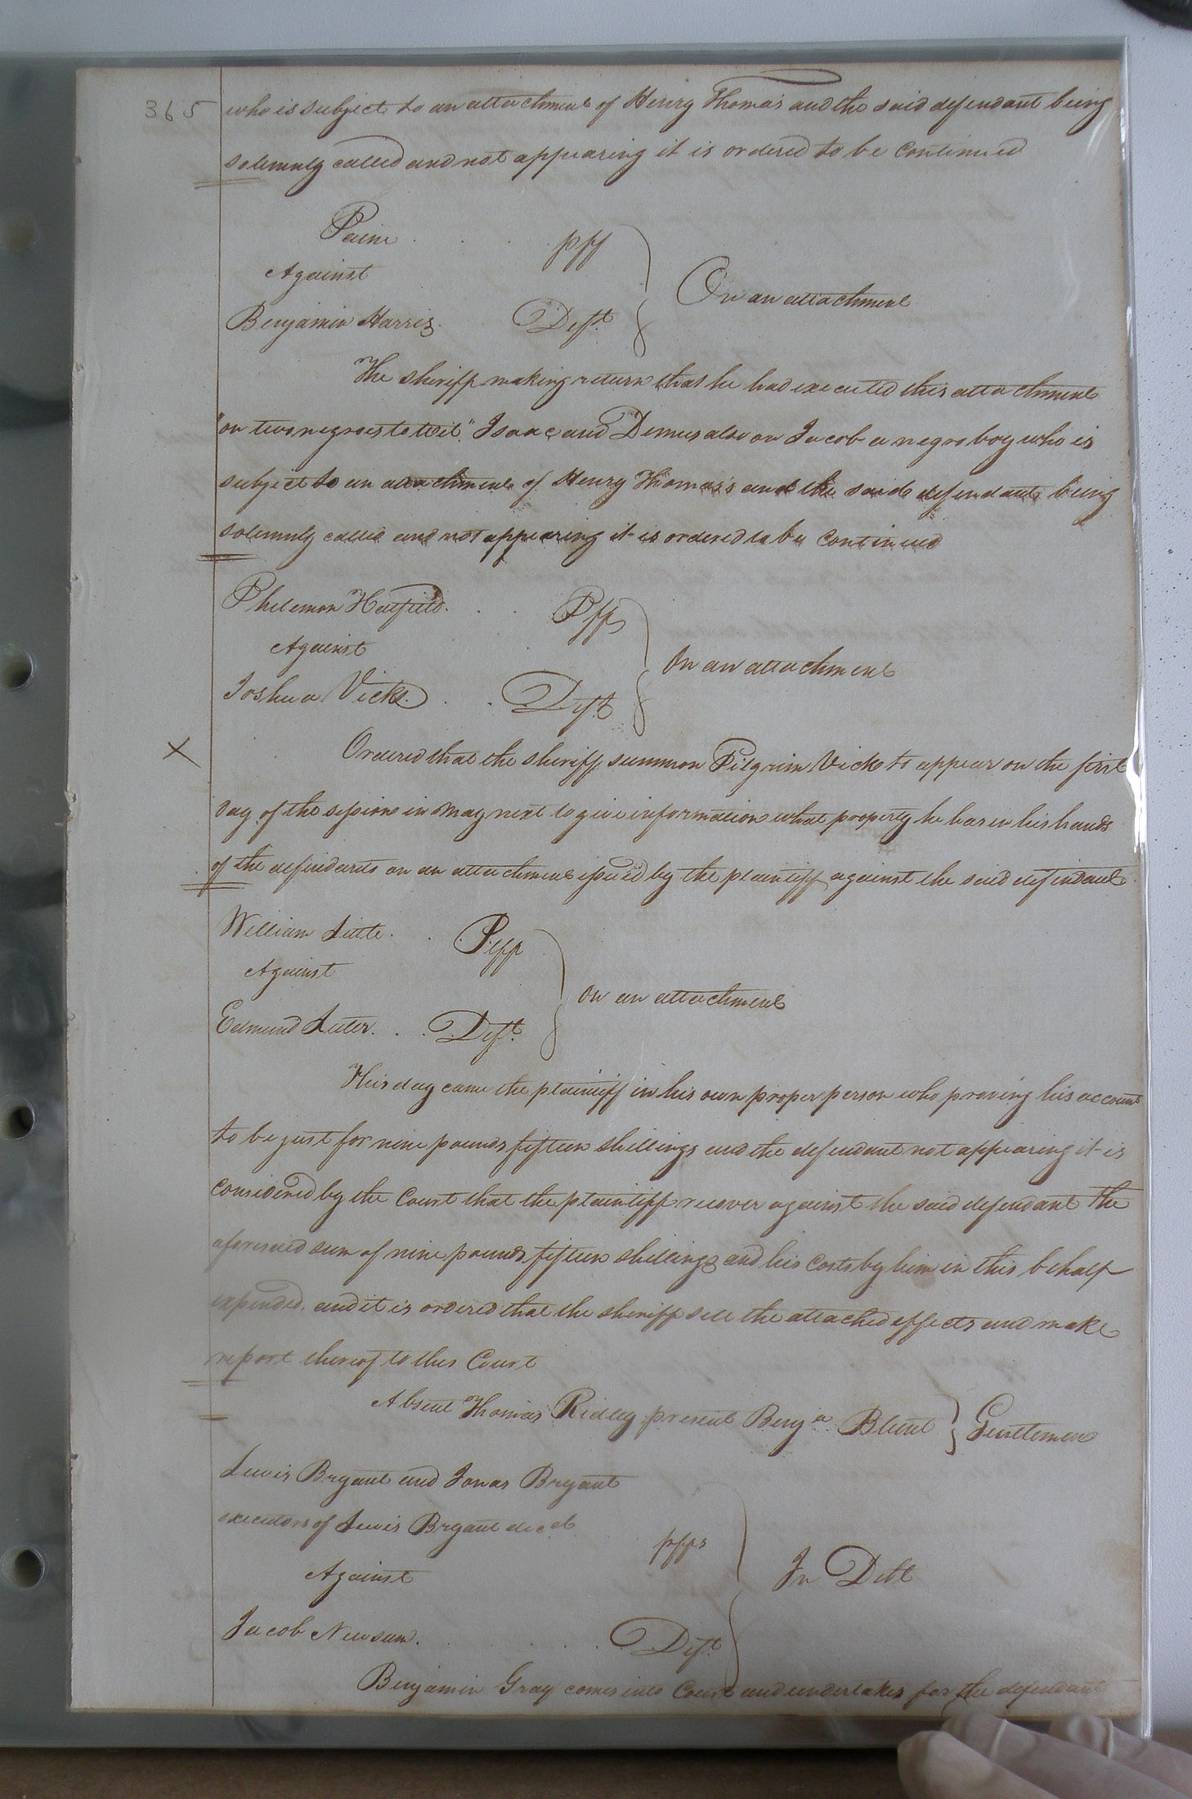 365 who is subject to an attachment of Henry Thomas and the said defendant being
solemnly called and not appearing it is ordered to be continued
Paine . . . pff
Against
On an attachment
Benjamin Harris. Deft
The sheriff making return that he had executed this attachment
"on two negroes to wit" Isaac and Demus also on Jacob a negro boy who is
subject to an attachment of Henry Thomas's and the said defendant being
solemnly called and not appearing it is ordered to be continued
Philemon Hatfield . . . Pff
Against
On an attachment
Joshua Vick . . Deft
X Ordered that the sheriff summon Pilgrim Vick to appear on the first
day of the session in May next to give information what property he has in his hands
of the defendants on an attachment issued by the plaintiff against the said defendant
William Little . . Plff
Against
On an attachment
Edmund Luter. . . Deft
This day came the plaintiff in his own proper person who proving his account
to be just for nine pounds fifteen shillings and the defendant not appearing it is
considered by the Court that the plaintiff recover against the said defendant the
aforesaid sum of nine pounds fifteen shillings and his costs by him in this behalf
expended. and it is ordered that the sheriff sell the attached effects and make
report thereof to this Court
Absent Thomas Ridley present Benja Blunt } Gentlemen
Lewis Bryant and Jonas Bryant
executors of Lewis Bryant decd
pffs
Against
In Debt
Jacob Newsum. . . . . Deft
Benjamin Gray comes into Court and undertakes for the defendant